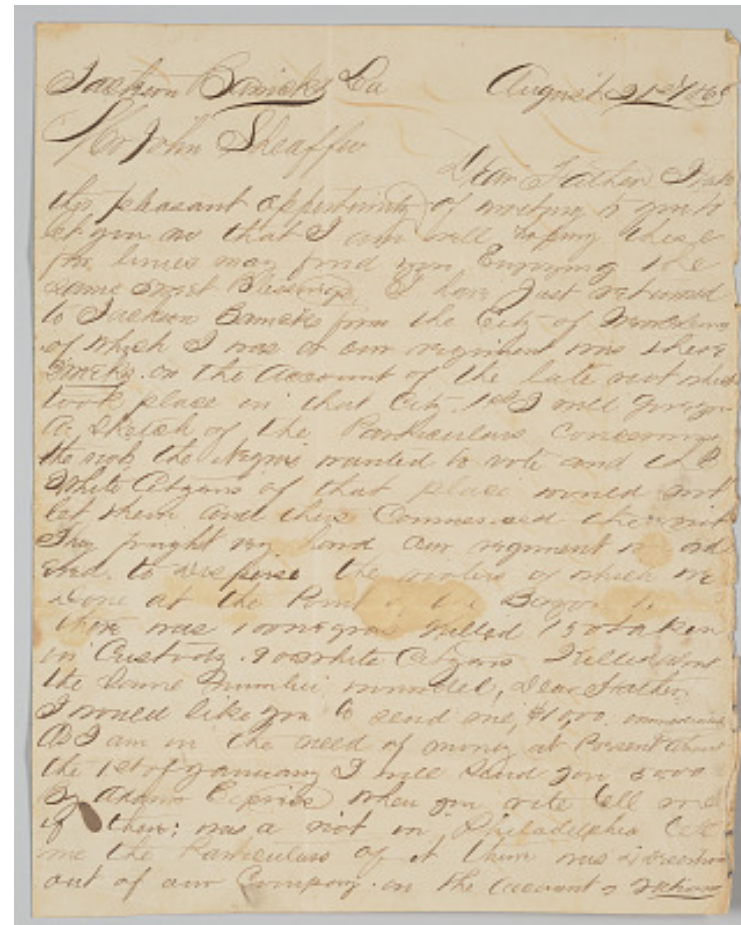 Jackson Barricks La August 21st 186
Mr John Sheaffer
Dear Father I take
this pleasant oppertunity of writing to you to
let you no that I am well hoping these
few lines may find you Enjoying the
same Great Blessings, I have Just returned
to Jackson Barricks from the City of
of which I was or our regiment was there
on the Account of the late riot which
took place in that City. 1st I will give you
a sketch of the Particulars Concerning
the riot, the Negros wanted to vote and the
White Citizans of that place would not
let them and they Commenced the riot
They fought very hard our regiment was
to disperse the rioters of which we
done at the Point of the
there was 100 negros killed 150 taken
in Custody. 90 white Citizans Killed about
the Same Number wounded, Dear Father
I would like you to send me, $10,00.
As I am in the need of money at Present about
the 1st of January I will Send you 50 00
By Adams Express when you rite tell me
if there was a riot in Philadelphia tell
me the Particulars of it there was
out of our Company. on the Account of